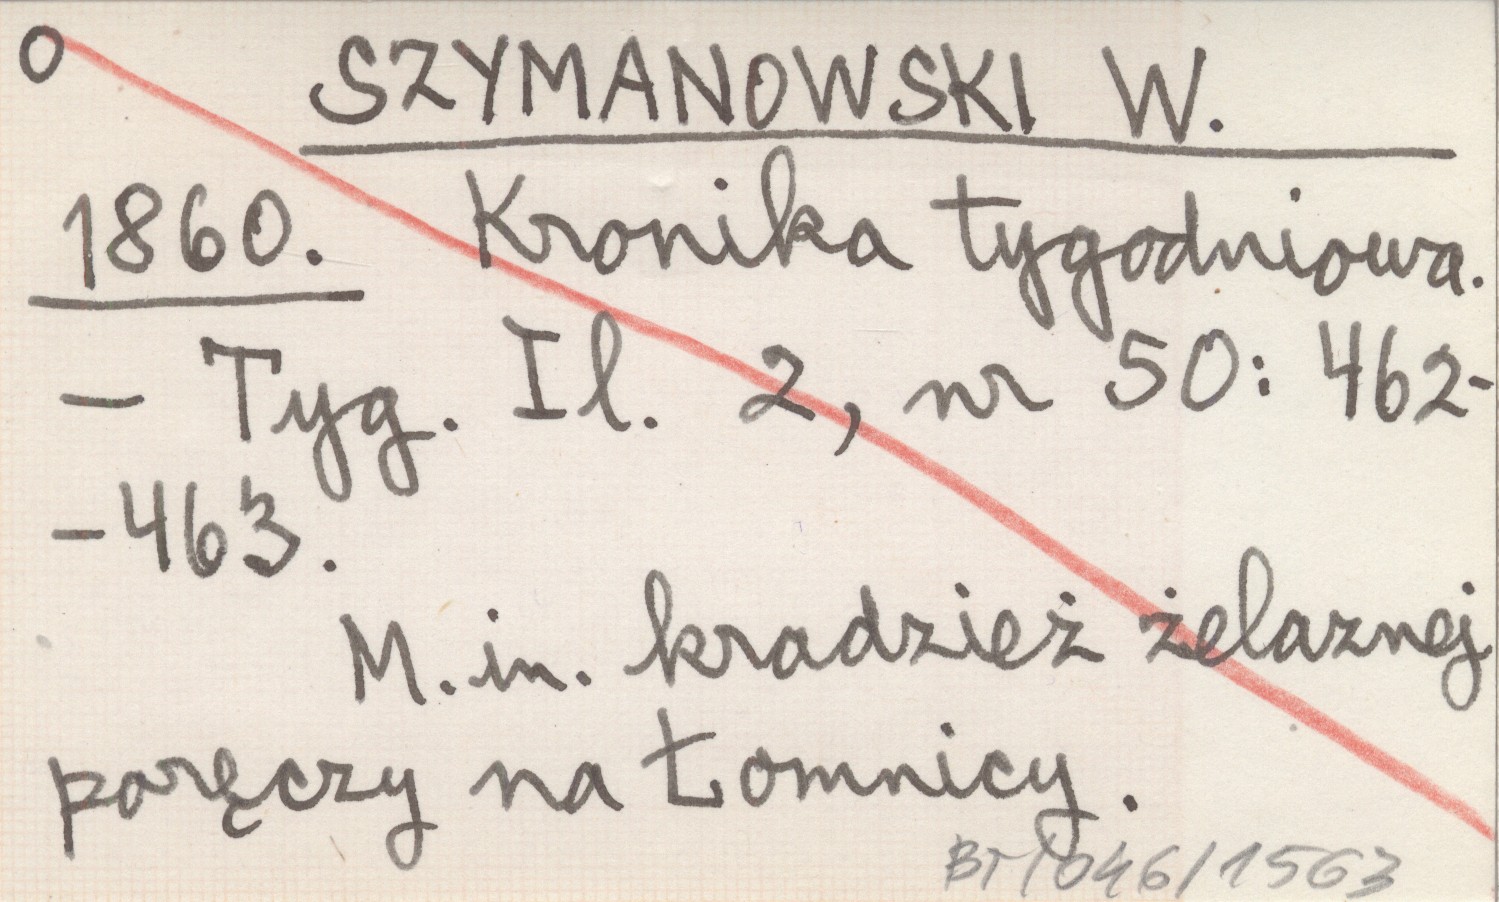 O SZYMANOWSKI W.
1860. Kronika tygodniowa.
– Tyg. Il. 2, nr 50: 462-
-463.
M.in. kradzież żelaznej
poręczy na Łomnicy.
BT/046/1563